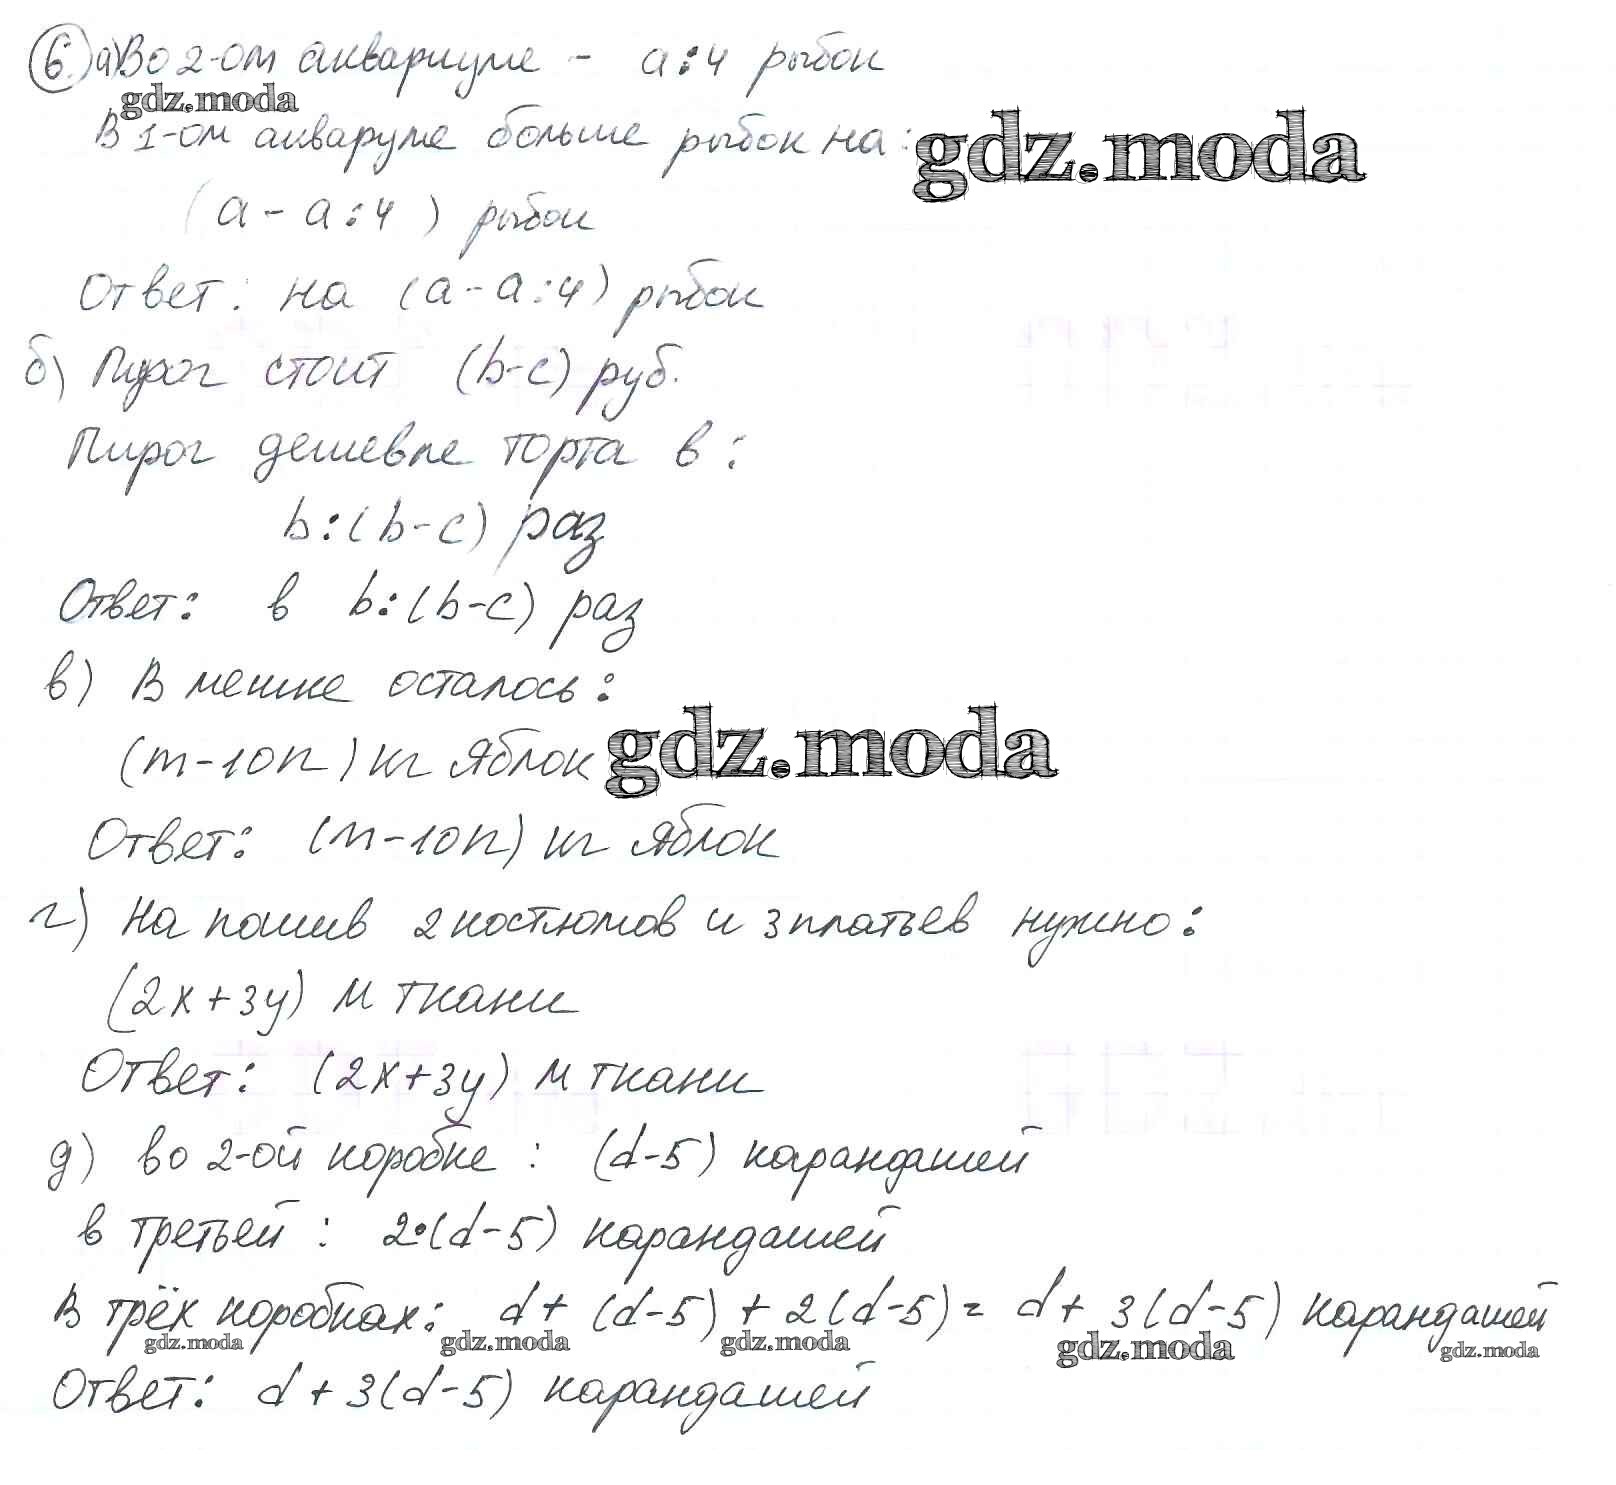 6. а) Во 2-ом аквариуме - a:4 рыбок
gdz.moda
В 1-ом акваруме больше рыбок на:
gdz.moda
(a - a:4) рыбок
Ответ: на (a - a:4) рыбок
б) Пирог стоит (b-c) руб.
Пирог дешевле торта в:
b:(b-c) раз
Ответ: в b:(b-c) раз
в) В мешке осталось:
(m-10n) кг яблок
gdz.moda
Ответ: (m-10n) кг яблок
г) На пошив 2 костюмов и 3 платьев нужно:
(2x+3y) м ткани
Ответ: (2x+3y) м ткани
д) во 2-ой коробке: (d-5) карандашей
в третьей: 2·(d-5) карандашей
В трёх коробках: d + (d-5) + 2(d-5) = d + 3(d-5) карандашей
gdz.moda gdz.moda gdz.moda gdz.moda gdz.moda
Ответ: d + 3(d-5) карандашей